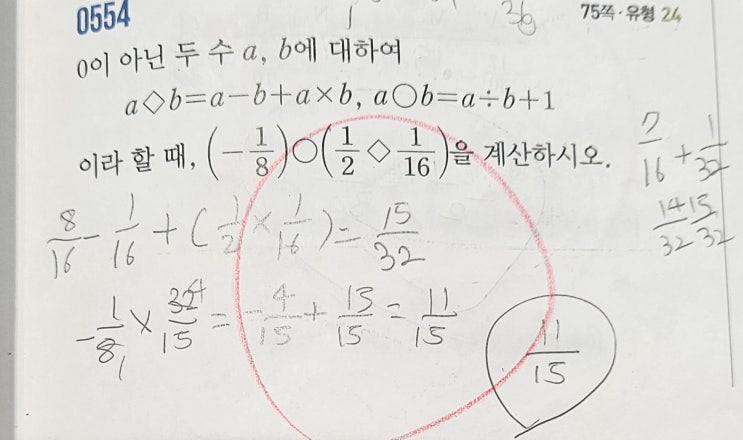 0554
36
75쪽·유형 24
0이 아닌 두 수 a, b에 대하여
a◇b=a-b+a×b, a○b=a÷b+1
이라 할 때, (-1/8)○(1/2◇1/16)을 계산하시오.
7/16+1/32
14/32 15/32
8/16-1/16+(1/2×1/16)=15/32
-1/8×32/15=-4/15+15/15=11/15
11/15